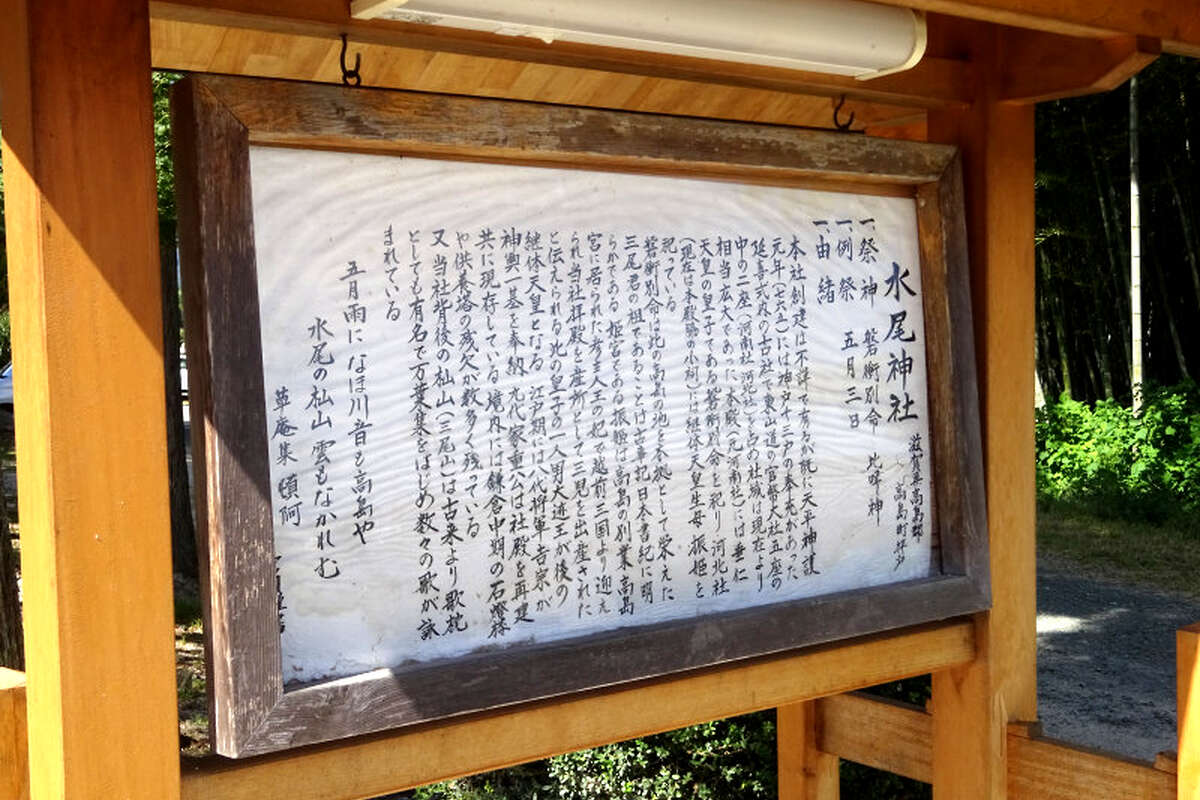 水尾神社
滋賀県高島郡
高島町拝戸
一、祭神 磐衝別命 比咩神
一、例祭 五月三日
一、由緒
本社創建は不詳で有るが既に天平神護
元年(七六五)には神戸十三戸の奉充があった
延喜式内の古社で東山道の官幣大社五座の
中の二座(河南社 河北社)を占め社域は現在より
相当広大であった 本殿(元河南社)には垂仁
天皇の皇子である磐衝別命を祀り 河北社
(現在は本殿脇の小祠)には継体天皇生母 振姫を
祀っている
磐衝別命は此の高島の地を本拠として栄えた
三尾君の祖であることは古事記日本書紀に明
らかである 姫宮である振姫は高島の別業 高島
宮に居られた彦主人王の妃で越前三国より迎え
られ当社拝殿を産所として三児を出産された
と伝えられる此の皇子の一人男大迹王が後の
継体天皇となる 江戸期には八代将軍吉宗が
神輿一基を奉納 九代家重公は社殿を再建
共に現存している 境内には鎌倉中期の石燈籠
や供養塔の残欠が数多く残っている
又当社背後の杣山(三尾山)は古来より歌枕
としても有名で万葉集をはじめ数々の歌が詠
まれている
五月雨に なほ川音も 高島や
水尾の杣山 雲もなかれむ
草庵集 頓阿